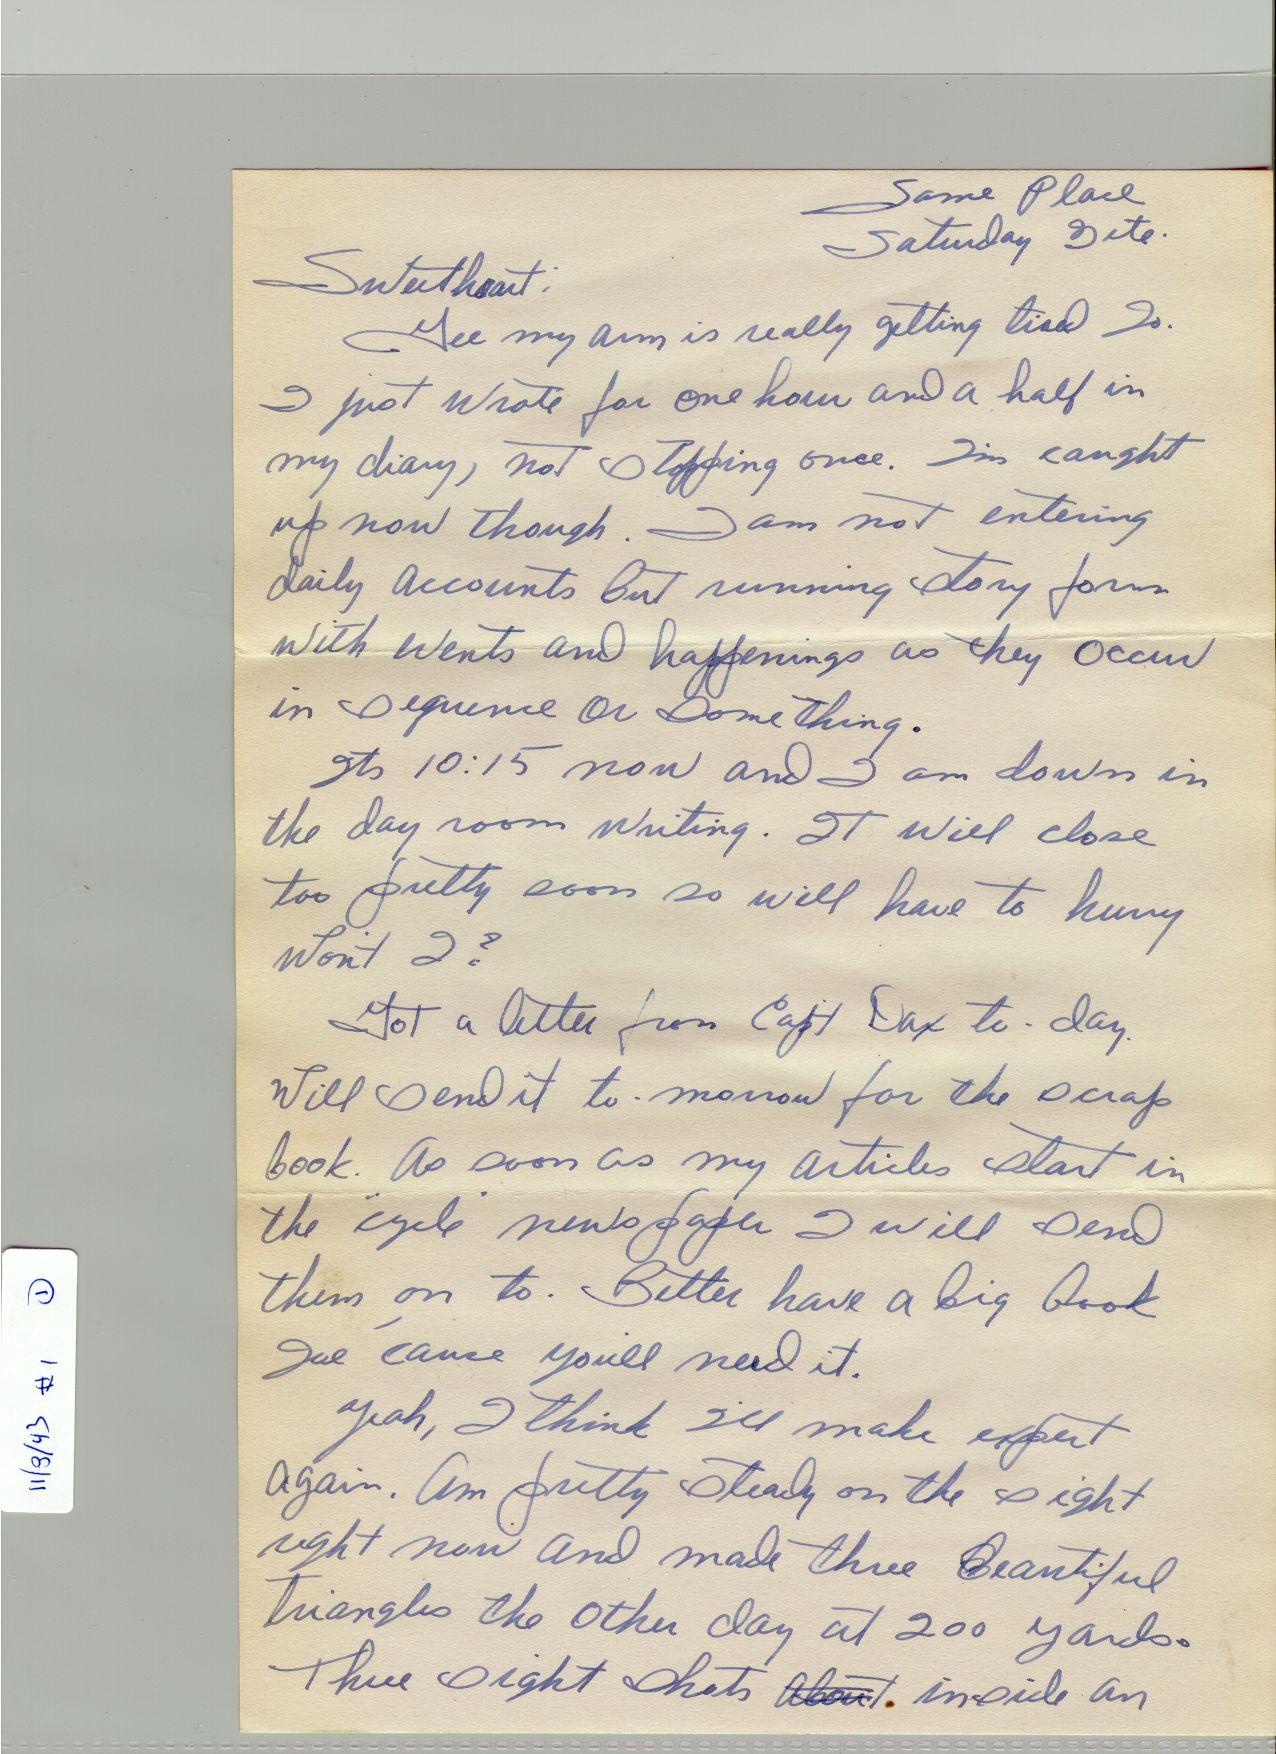 Same Place
Saturday Nite.
Sweetheart:
Gee my arm is really getting tired Jo.
I just wrote for one hour and a half in
my diary, not stopping once. I'm caught
up now though. I am not entering
daily accounts but running story form
with events and happenings as they occur
in sequence or something.
Its 10:15 now and I am down in
the day room writing. It will close
too pretty soon so will have to hurry
won't I?
Got a letter from Capt Dax to-day.
Will send it to-morrow for the scrap
book. As soon as my articles start in
the "cycle" newspaper I will send
them on to. Better have a big book
'cause you'll need it.
Yeah, I think I'll make expert
again. Am pretty steady on the sight
right now and made three beautiful
triangles the other day at 200 yards.
Three sight shots about. inside an
11/3/43 #1 1